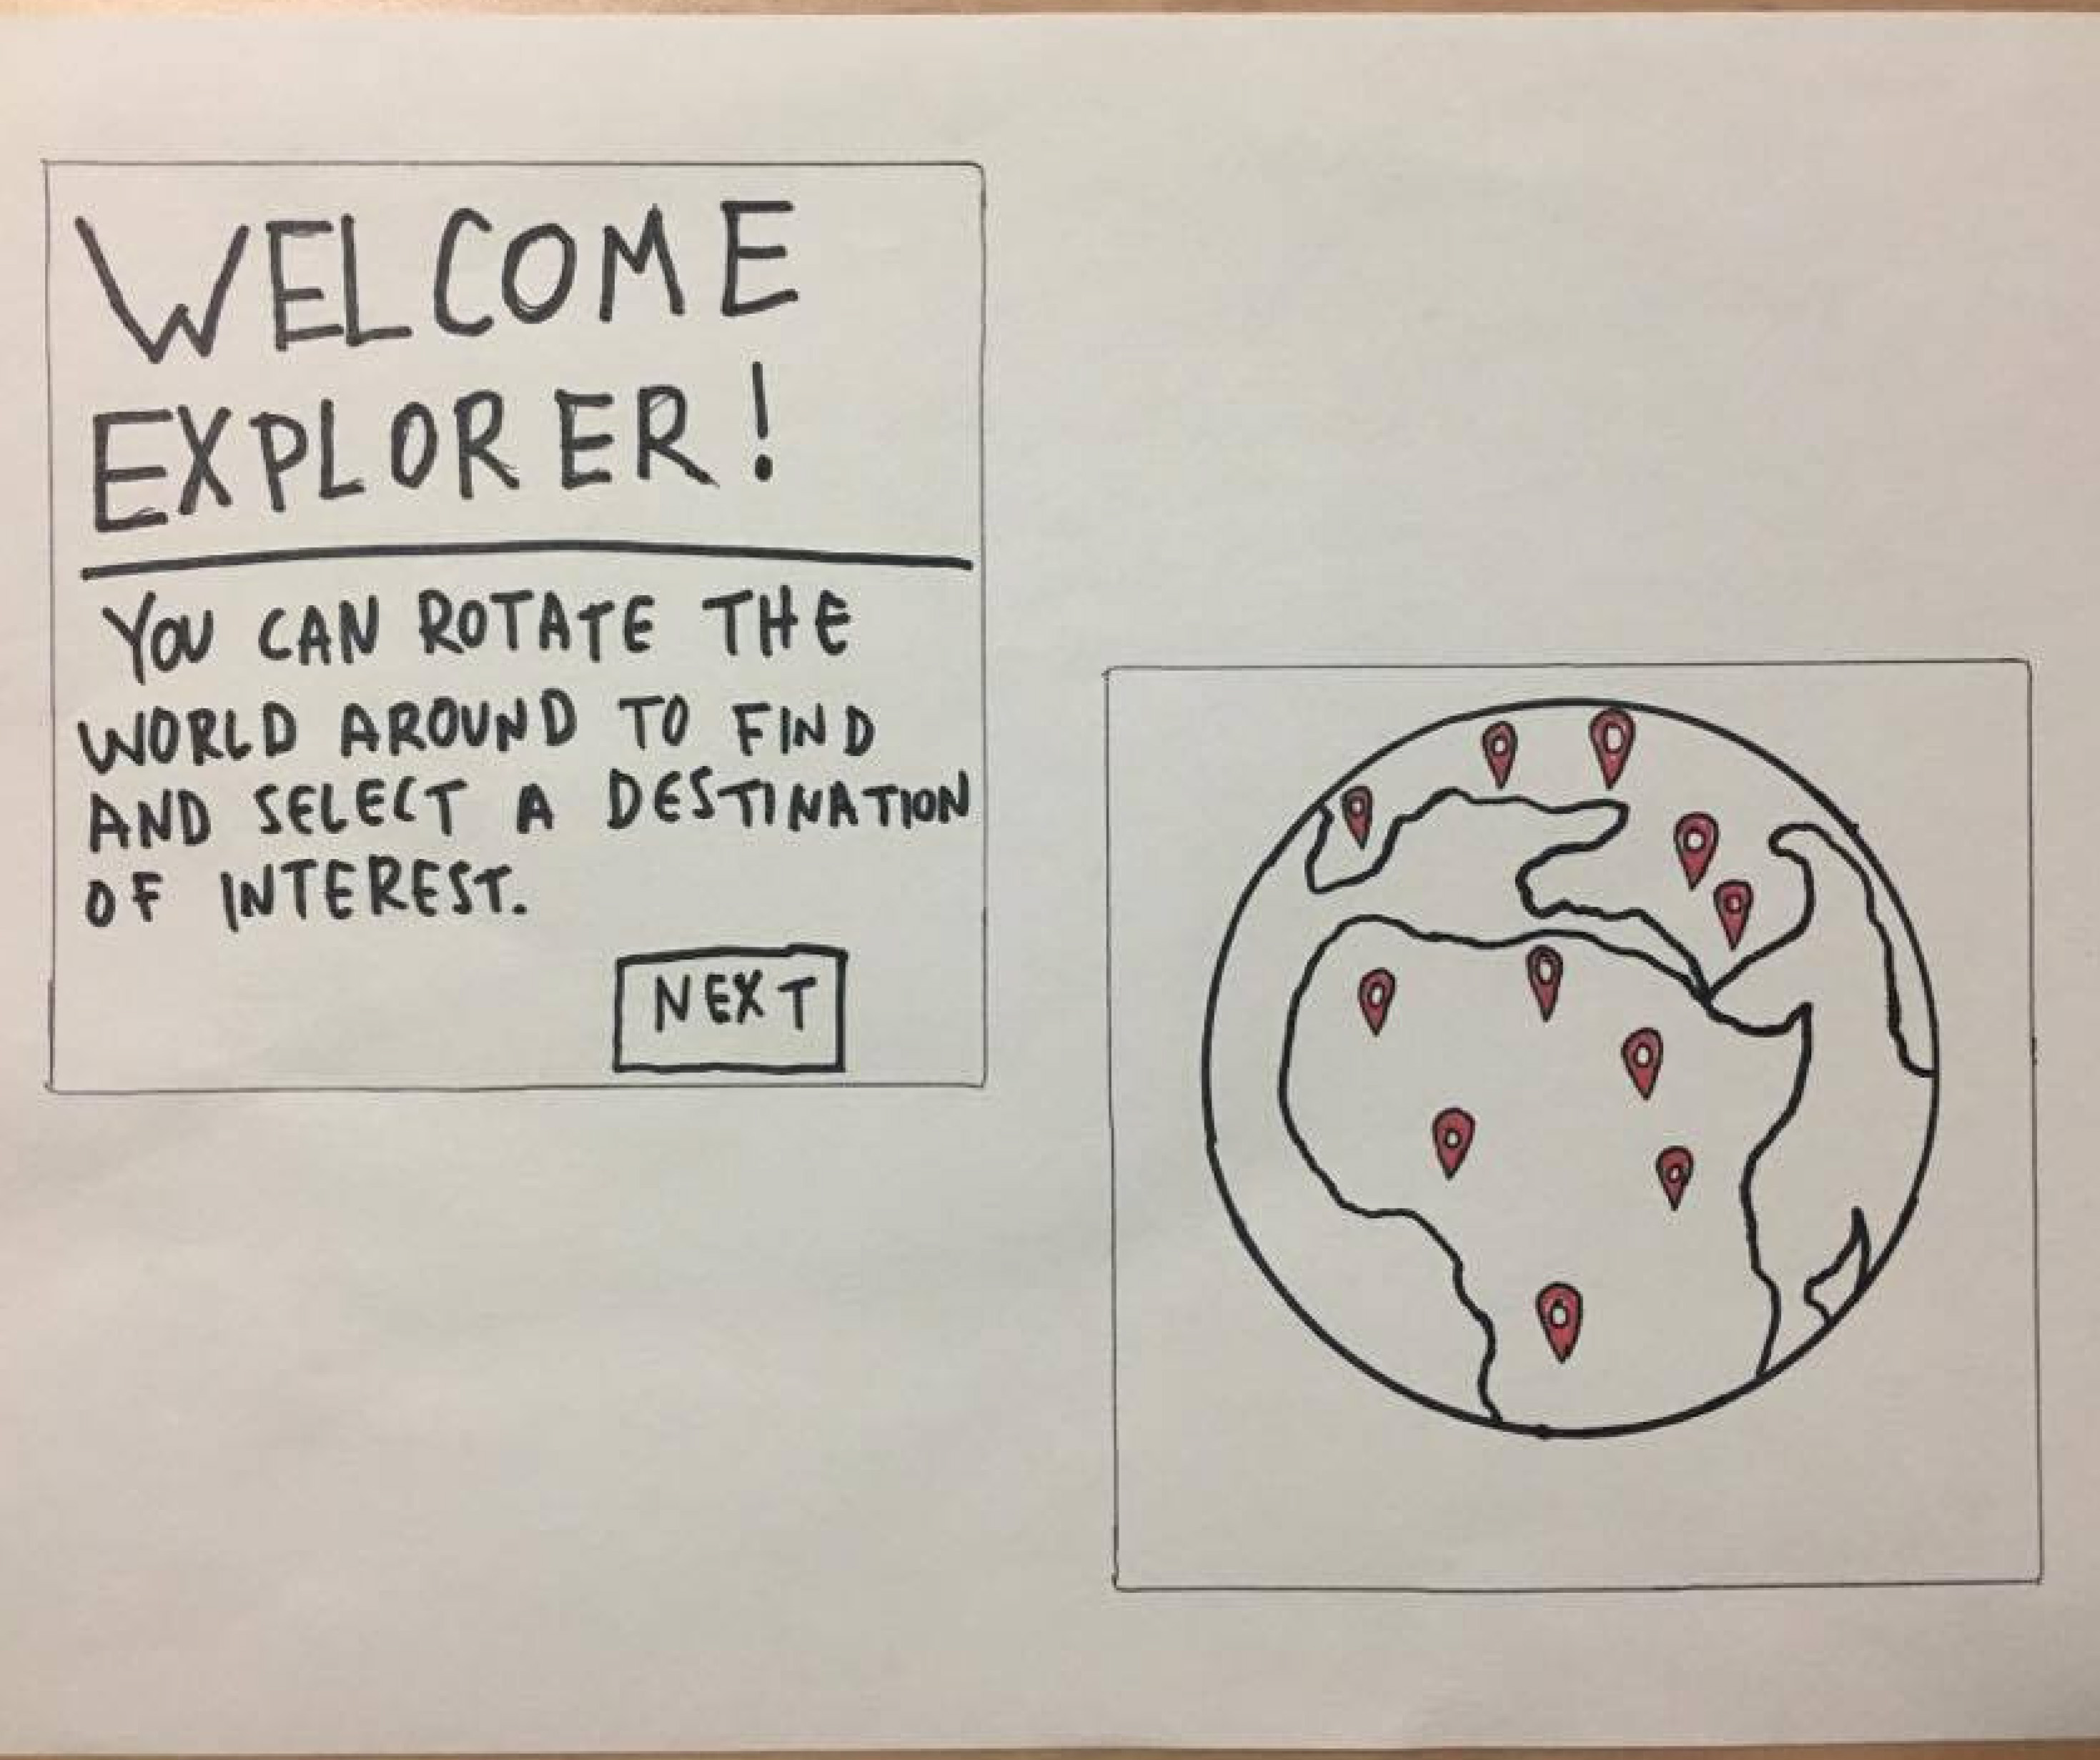 WELCOME
EXPLORER!
YOU CAN ROTATE THE
WORLD AROUND TO FIND
AND SELECT A DESTINATION
OF INTEREST.
NEXT